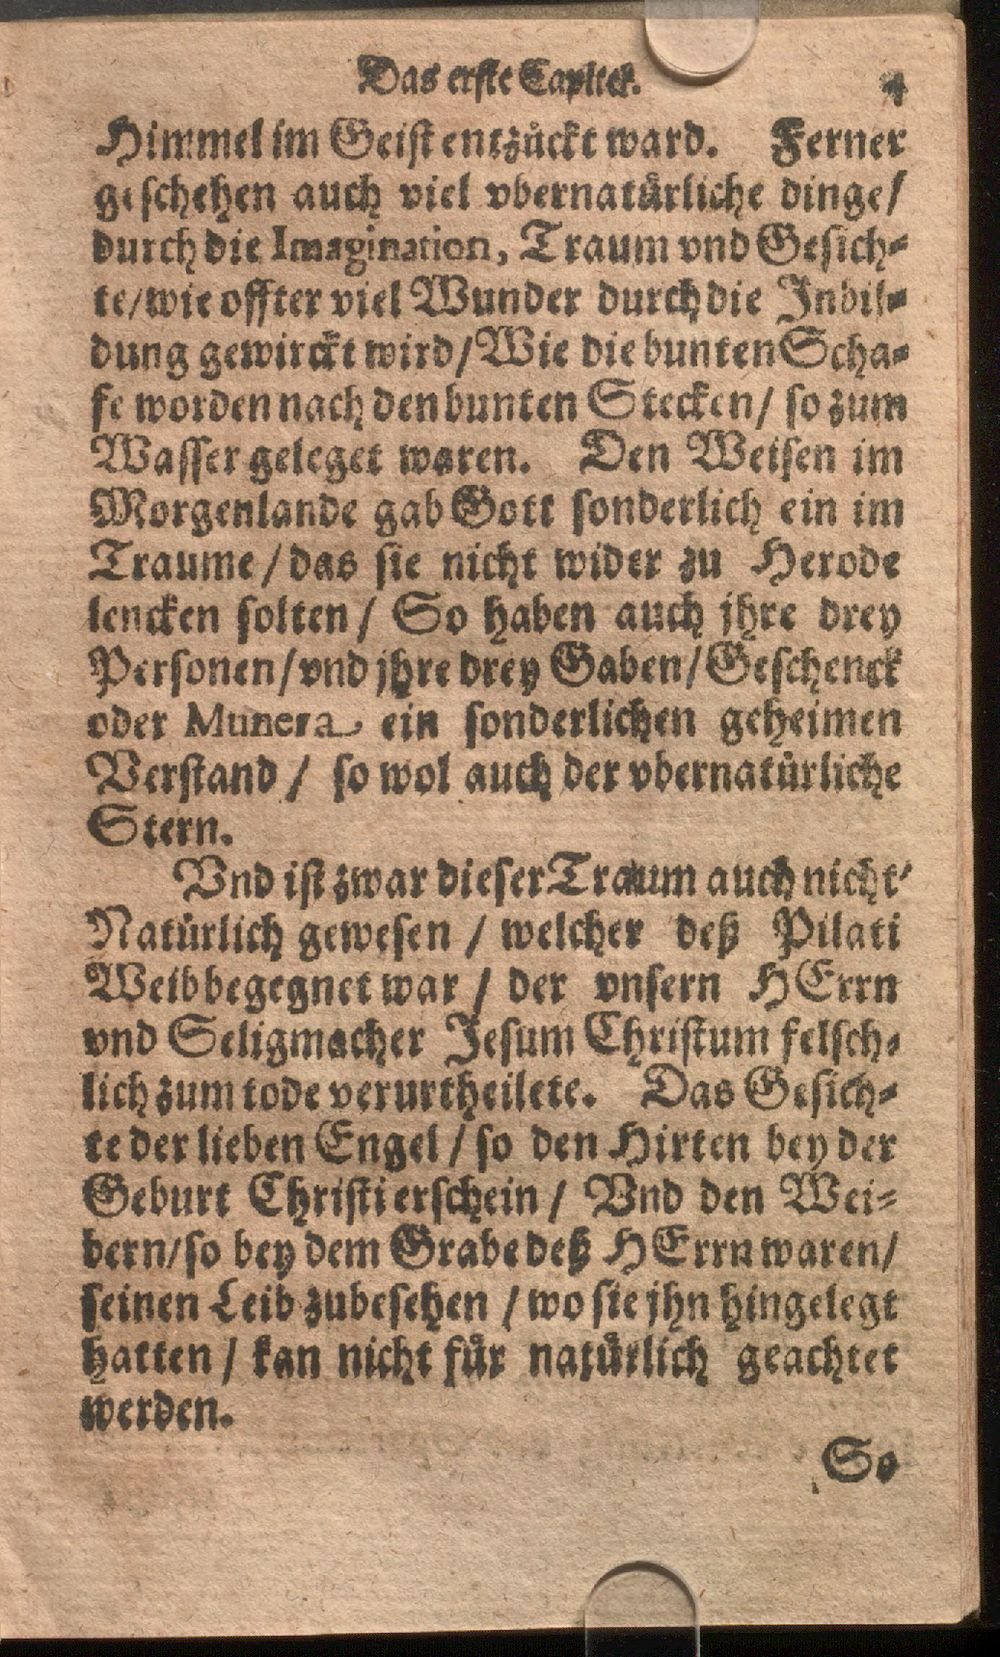 Das erste Capittel. 4
Himmel im Geist entzuͤckt ward. Ferner
geschehen auch viel vbernatuͤrliche dinge/
durch die Imagination, Traum vnd Gesich-
te/wie offter viel Wunder durch die Inbil-
dung gewirckt wird/Wie die bunten Scha-
fe worden nach den bunten Stecken/ so zum
Wasser geleget waren. Den Weisen im
Morgenlande gab Gott sonderlich ein im
Traume/das sie nicht wider zu Herode
lencken solten/ So haben auch jhre drey
Personen/vnd jhre drey Gaben/Geschenck
oder Munera ein sonderlichen geheimen
Verstand/ so wol auch der vbernatürliche
Stern.
Vnd ist zwar dieser Traum auch nicht
Natürlich gewesen/ welcher deß Pilati
Weib begegnet war/ der vnsern HErrn
vnd Seligmacher Jesum Christum felsch-
lich zum tode verurtheilete. Das Gesich-
te der lieben Engel/so den Hirten bey der
Geburt Christi erschein/ Vnd den Wei-
bern/so bey dem Grabe deß HErrn waren/
seinen Leib zubesehen/wo sie jhn hingelegt
hatten/ kan nicht fuͤr natuͤrlich geachtet
werden.
So